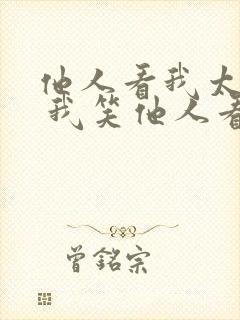 他人看我太
我笑他人看
曾銘宗